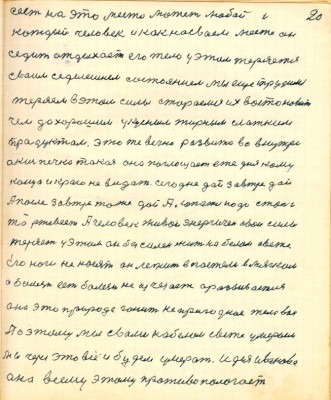 20
сест на это место может любой и
каждый человек и как насваем месте он
седит отдыхает его тело у этом теряется
сваим седешнем состоянем мы еще трудим
теряем в этом силы стараемся их востоновит
чем да хорошим укусным жирным сладким
продуктом. это же вечно развито во внутре
она печка такая она поглощает еже дня кому
конца и краю не видат. сегодне дай завтре дай
А после завтре тоже дай А. копать
то ржевеет А человек живой энергичен сваи силы
теряет у этом он басилен жит на белом свете
Его ноги не носят он лежит в постели в мягком
а болеет ест болезн не изучается а развивается
она это природе гонит не пригодное тело вон
По этому мы свами на белом свете умераем
мы чере это всё и будем умерат. Идея Иванова
она всему этому противо пологает